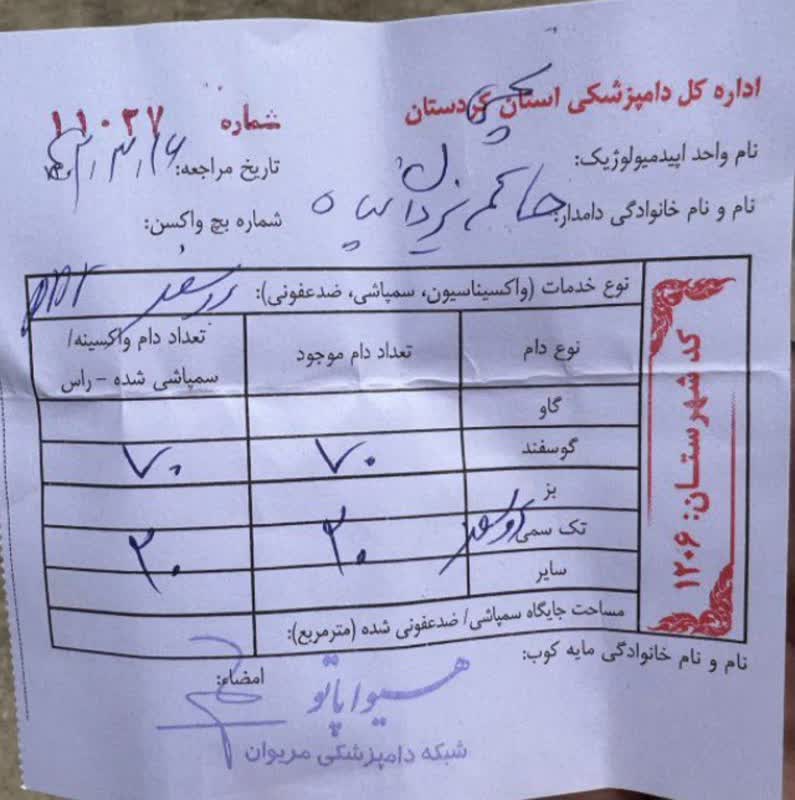 اداره کل دامپزشکی استان کردستان
شماره ۱۱۰۳۷
نام واحد اپیدمیولوژیک:
تاریخ مراجعه:
نام و نام خانوادگی دامدار: حاکم یزدان پناه
شماره بچ واکسن:
نوع خدمات (واکسیناسیون، سمپاشی، ضدعفونی): PPR
نوع دام
تعداد دام موجود
تعداد دام واکسینه/
سمپاشی شده – راس
گاو
گوسفند ۷۰ ۷۰
بز
تک سمی ۳۰ ۳۰
سایر
مساحت جایگاه سمپاشی/ ضدعفونی شده (مترمربع):
کد شهرستان: ۱۲۰۶
نام و نام خانوادگی مایه کوب:
امضاء:
هیوا پاتو
شبکه دامپزشکی مریوان